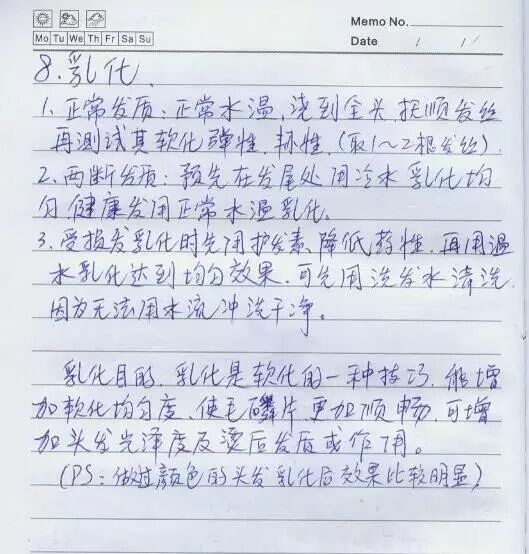 Memo No.
Mo Tu We Th Fr Sa Su
Date / /
8.乳化.
1.正常发质:正常水温,浇到全头 抚顺发丝
再测试其软化弹性.韧性.(取1～2根发丝).
2.两断发质:预先在发尾处用冷水乳化均
匀.健康发用正常水温乳化.
3.受损发乳化时先用护发素.降低药性.再用温
水乳化达到均匀效果.可先用洗发水清洗.
因为无法用水流冲洗干净。
乳化目的.乳化是软化的一种技巧.能增
加软化均匀度.使毛磷片更加顺畅.可增
加头发光泽度及烫后发质或作用。
(PS:做过颜色的头发乳化后效果比较明显)